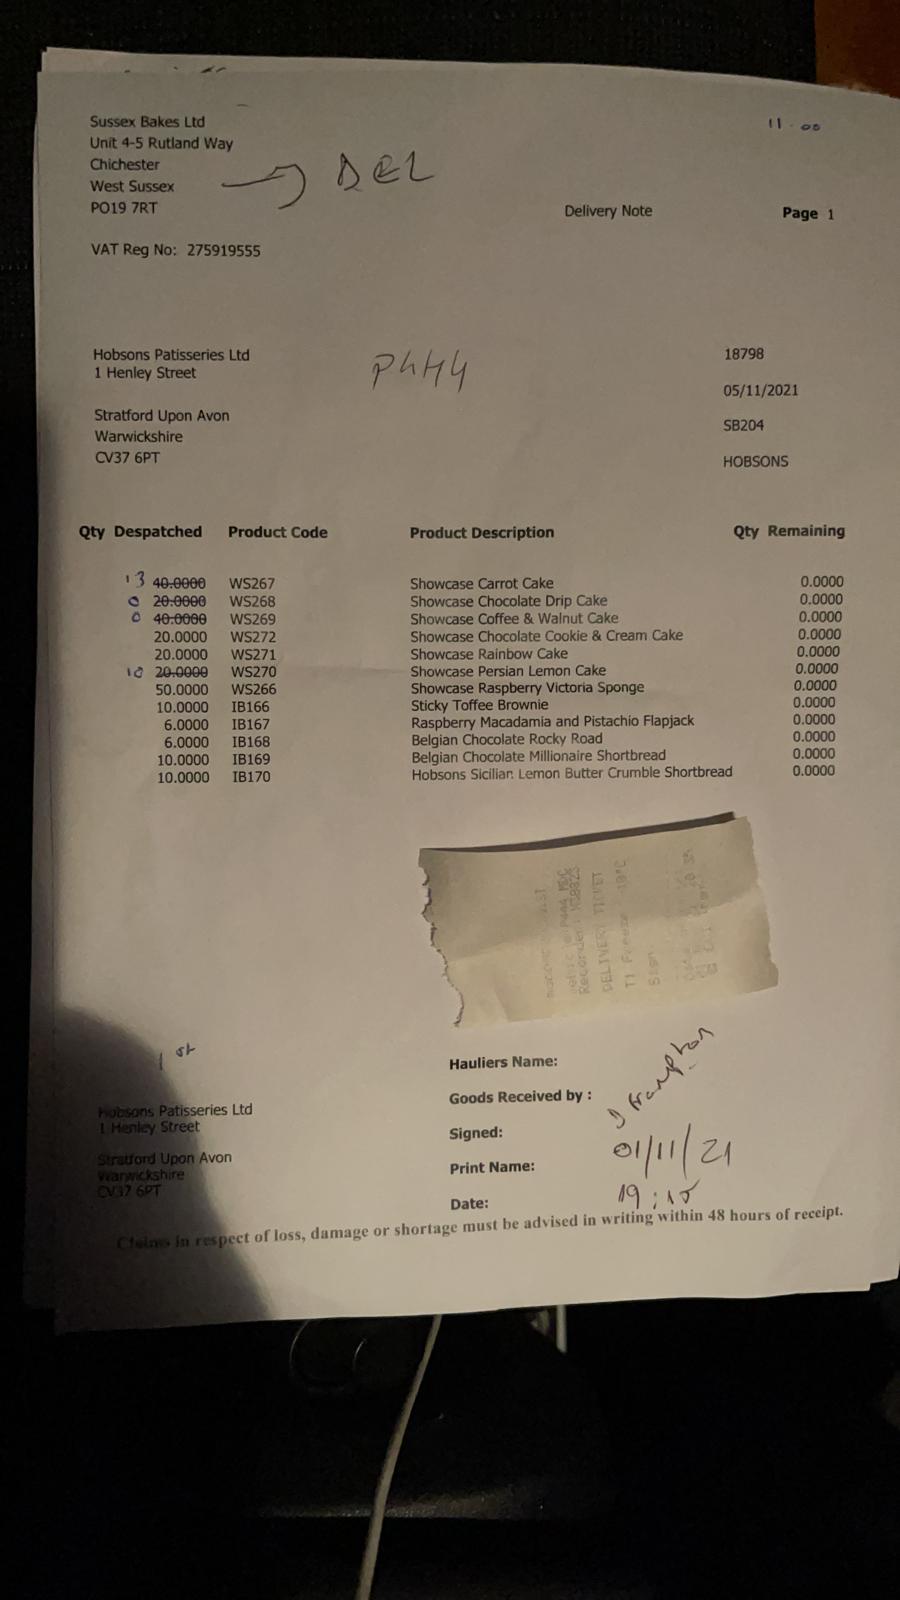 Sussex Bakes Ltd
11.00
Unit 4-5 Rutland Way
Chichester
West Sussex
DEL
PO19 7RT
Delivery Note Page 1
VAT Reg No: 275919555
Hobsons Patisseries Ltd
1 Henley Street
Stratford Upon Avon
Warwickshire
CV37 6PT
P444
18798
05/11/2021
SB204
HOBSONS
Qty Despatched Product Code Product Description Qty Remaining
13 40.0000 WS267 Showcase Carrot Cake 0.0000
0 20.0000 WS268 Showcase Chocolate Drip Cake 0.0000
0 40.0000 WS269 Showcase Coffee & Walnut Cake 0.0000
20.0000 WS272 Showcase Chocolate Cookie & Cream Cake 0.0000
20.0000 WS271 Showcase Rainbow Cake 0.0000
10 20.0000 WS270 Showcase Persian Lemon Cake 0.0000
50.0000 WS266 Showcase Raspberry Victoria Sponge 0.0000
10.0000 IB166 Sticky Toffee Brownie 0.0000
6.0000 IB167 Raspberry Macadamia and Pistachio Flapjack 0.0000
6.0000 IB168 Belgian Chocolate Rocky Road 0.0000
10.0000 IB169 Belgian Chocolate Millionaire Shortbread 0.0000
10.0000 IB170 Hobsons Sicilian Lemon Butter Crumble Shortbread 0.0000
DELIVERY TICKET
1st
Hobsons Patisseries Ltd
1 Henley Street
Stratford Upon Avon
Warwickshire
CV37 6PT
Hauliers Name:
Goods Received by :
Signed:
Print Name: 01/11/21
Date: 19:15
Claims in respect of loss, damage or shortage must be advised in writing within 48 hours of receipt.